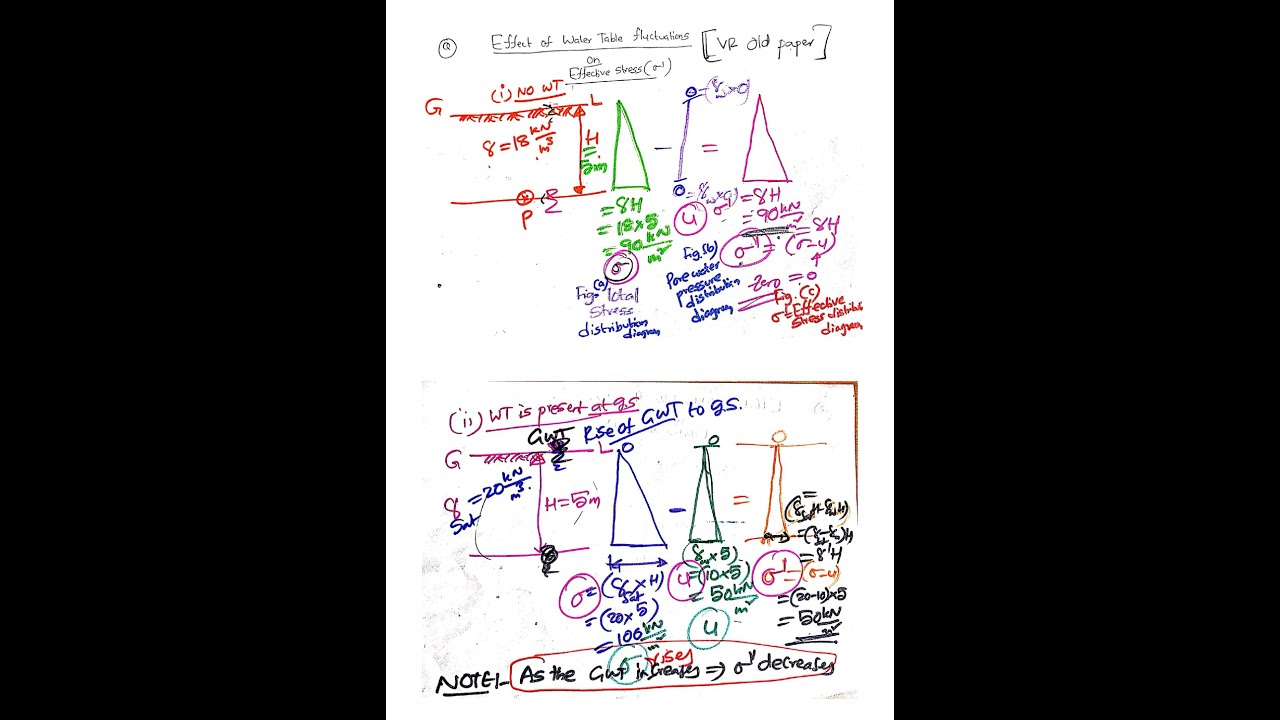 Q
Effect of Water Table fluctuations
[VR old paper]
on
Effective stress (σ')
(i) NO WT
G L
γ = 18 kN/m³
H = 5m
P
= γH
= 18×5
= 90 kN/m²
σ
Fig. (a) Total
Stress
distribution
diagram
−
0 = (γw×0)
0 = (γw×0)
u
Fig. (b)
Pore water
pressure
distribution
diagram
=
σ' = γH
= 90 kN/m²
= γH
σ' = (σ-u)
Zero = 0
Fig. (c)
σ' = Effective
stress distribution
diagram
(ii) WT is present at g.s
Rise of GWT to g.s.
GWT
G L
γsat = 20 kN/m³
H = 5m
0
−
0
=
0
σ = (γsat × H)
= (20 × 5)
= 100 kN/m²
σ
u
(γw × 5)
= (10 × 5)
= 50 kN/m²
u
=
(γsat H - γw H)
= (γsat - γw) H
= γ'H
σ' = (σ-u)
= (20-10)×5
= 50 kN/m²
rises
NOTE1- As the GWT increases ⇒ σ' decreases